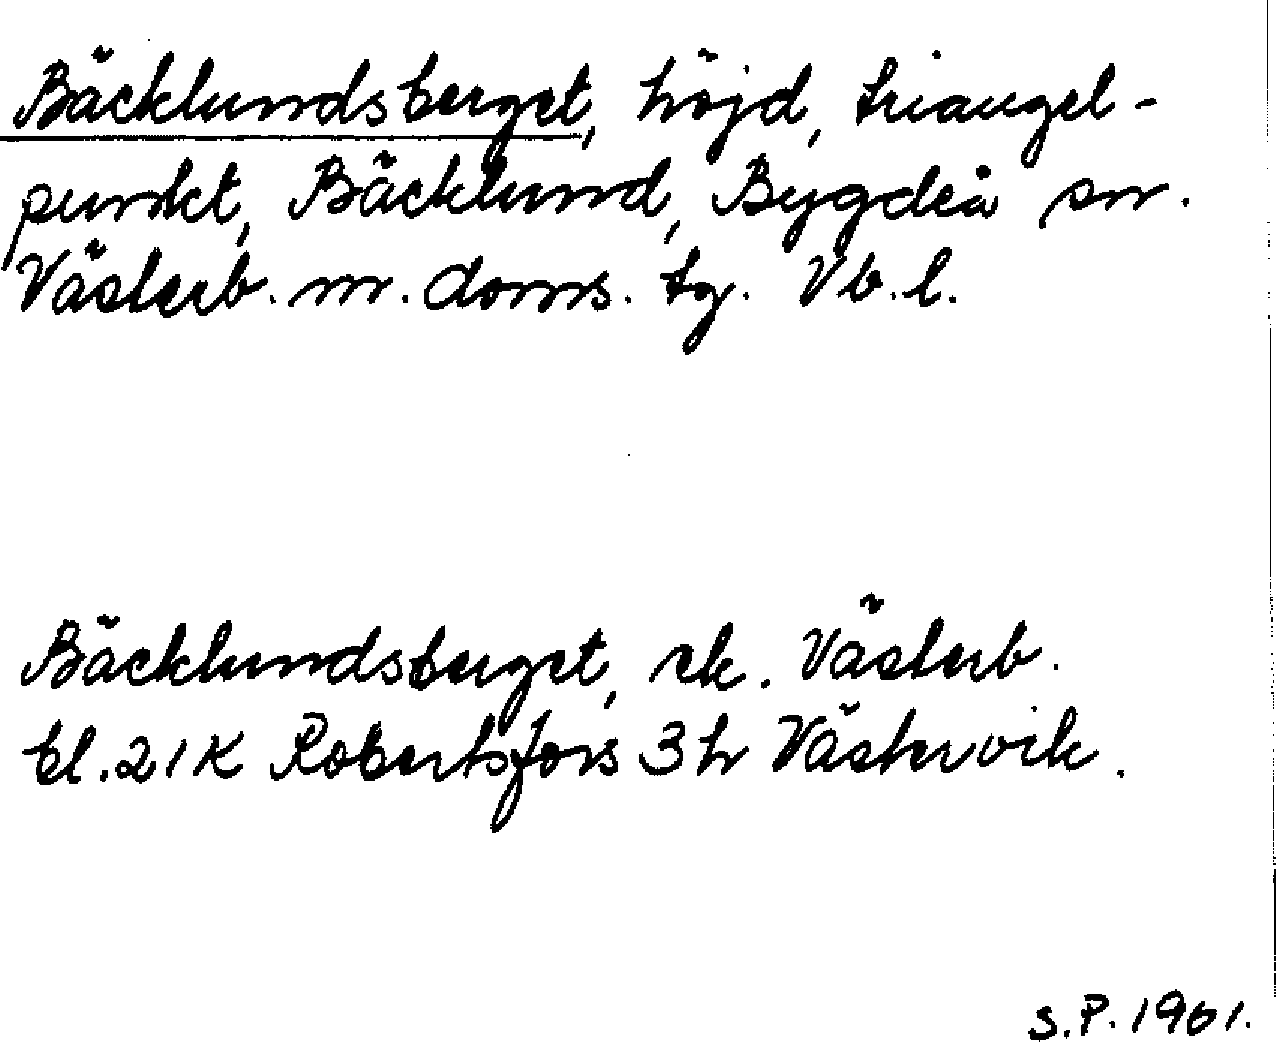 Bäcklundsberget, höjd, triangel-
punkt, Bäcklund, Bygdeå sn.
Västerb. m. doms. tg. Vb. l.
Bäcklundsberget, ek. Västerb.
bl. 21K Robertsfors 3h Västervik.
S.P. 1961.